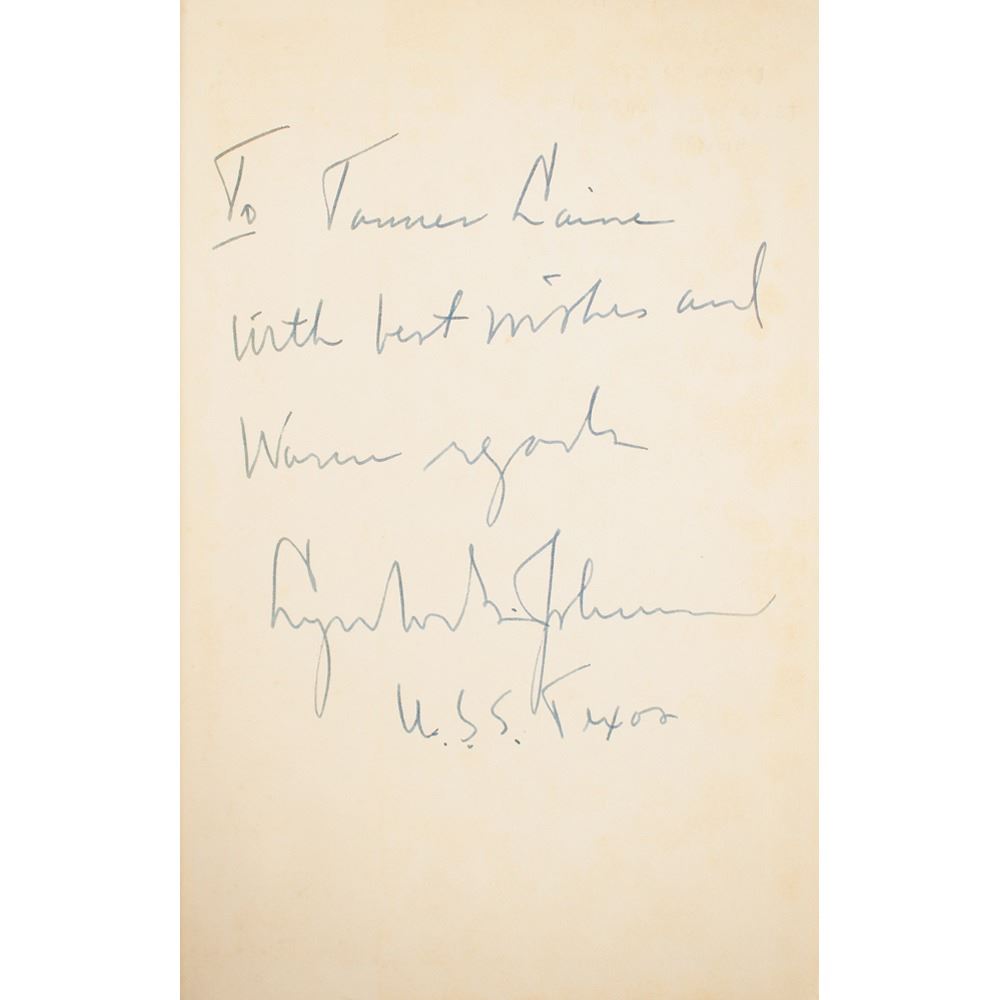 To Tanner Laine
with best wishes and
Warm regards
Lyndon B. Johnson
U.S.S. Texas